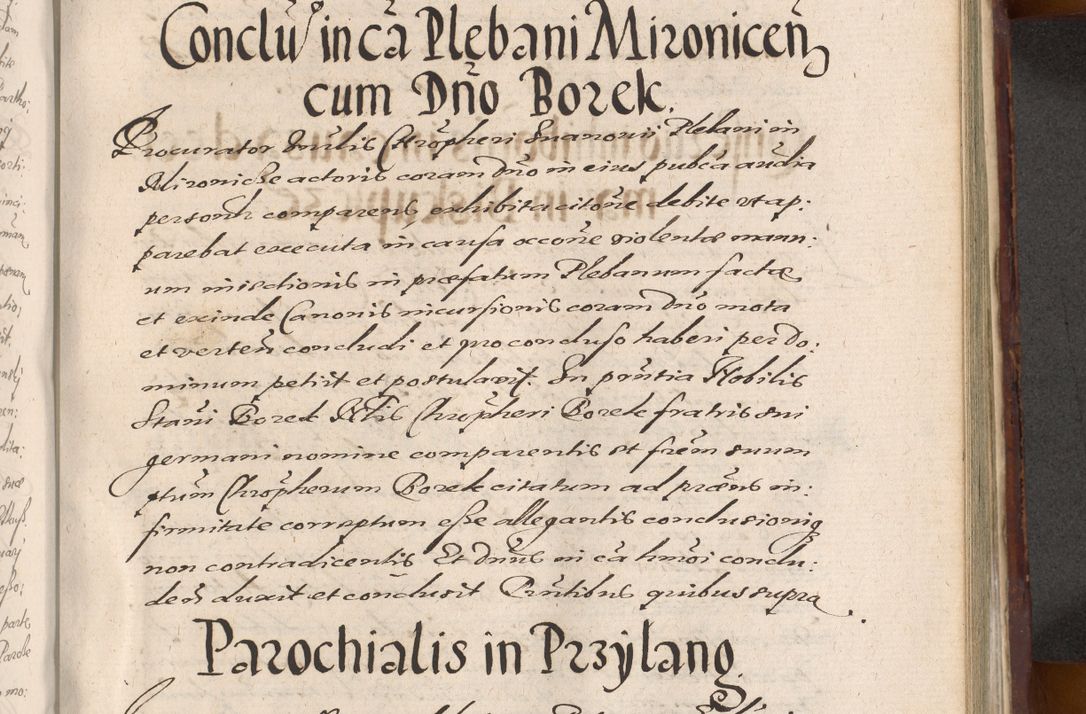 Conclu͂ in cã Plebani Mironiceñ
cum Dño Borek.
Procurator Hrũlis Chrõpheri Iuanovii Plebani in
Mironicze actoris coram Dño in eius pub͂ca audĩa
personlr comparens exhibita citõne debite ut ap:
parebat executa in causa occõne violentæ manu:
um iniectionis in præfatum Plebanum factæ
et exinde Canonis incursionis coram Dño mota
et verteñ concludi et pro concluso haberi per Do:
minum petiit et postulavit. In prñtia Nobilis
Stañi Borek Nlis Chrõpheri Borek fratris sui
germani nomine comparentis et frẽm suum
ptum Chrõpherum Borek citatum ad præns in:
firmitate correptum esse allegantis conclusioniq
non contradicentis Et Dnus in cã hmõi conclu:
deñ duxit et conclusit Prñtibus quibus supra.
Parochialis in Przÿlanq